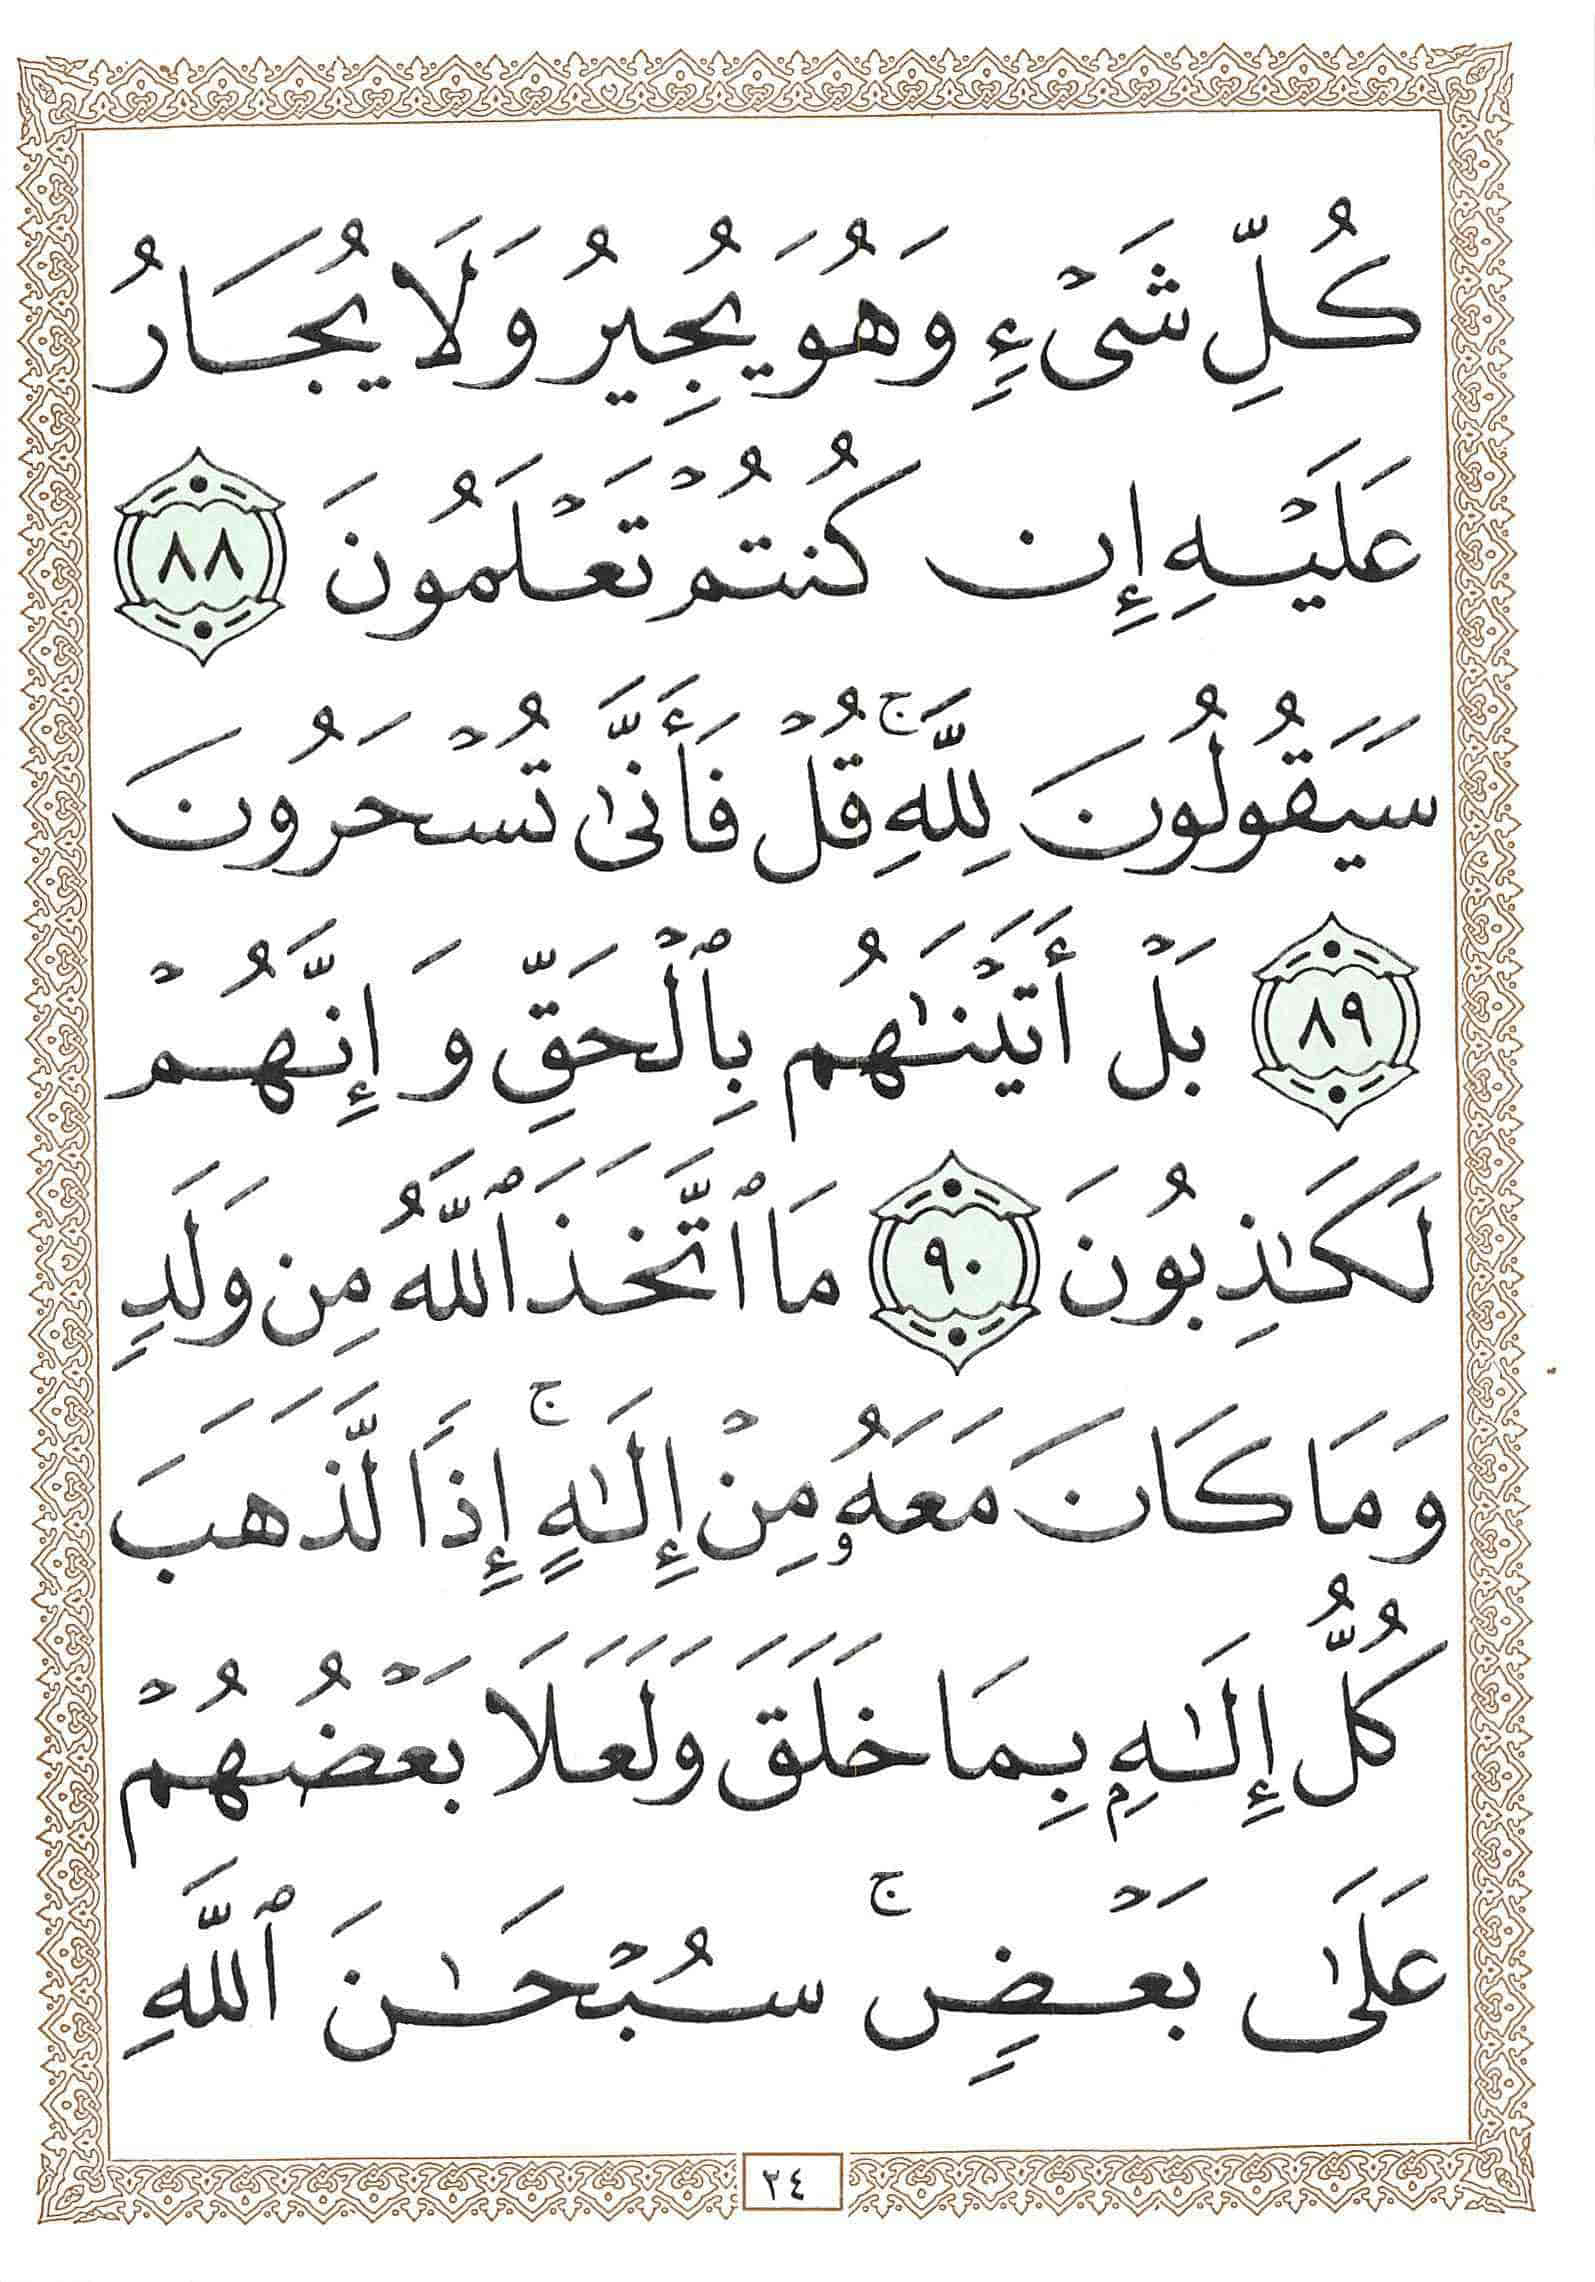 كُلِّ شَىْءٍ وَهُوَ يُجِيرُ وَلَا يُجَارُ
عَلَيْهِ إِن كُنتُمْ تَعْلَمُونَ ٨٨
سَيَقُولُونَ لِلَّهِ ۚ قُلْ فَأَنَّىٰ تُسْحَرُونَ
٨٩ بَلْ أَتَيْنَـٰهُم بِٱلْحَقِّ وَإِنَّهُمْ
لَكَـٰذِبُونَ ٩٠ مَا ٱتَّخَذَ ٱللَّهُ مِن وَلَدٍ
وَمَا كَانَ مَعَهُۥ مِنْ إِلَـٰهٍ ۚ إِذًا لَّذَهَبَ
كُلُّ إِلَـٰهٍۭ بِمَا خَلَقَ وَلَعَلَا بَعْضُهُمْ
عَلَىٰ بَعْضٍ ۚ سُبْحَـٰنَ ٱللَّهِ
٢٤